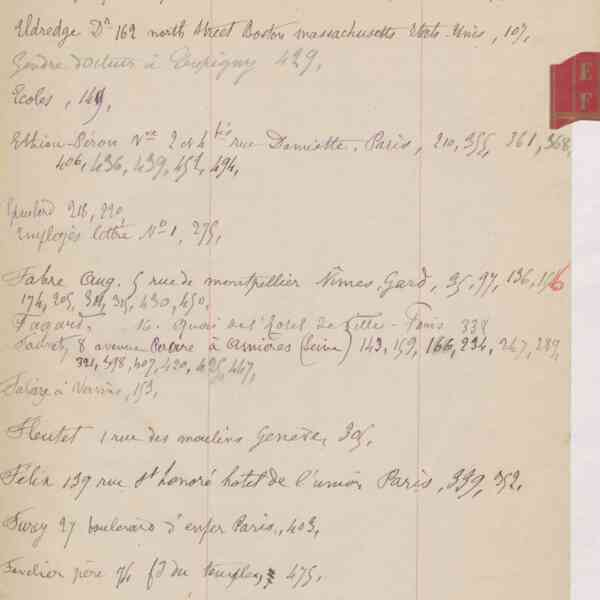 Eldredge Dn 162 north Street Boston massachusetts Etats-Unis, 107,
Gendre docteur à Eurpigny 429,
Ecoles, 149,
E
F
Ethiou-Péron Nve 2 et 4 bis rue Damiette. Paris, 210, 355, 361, 368,
406, 436, 439, 451, 494,
218, 220,
Employés lettre No 1, 275,
Fabre Aug. 5 rue de montpellier Nîmes, Gard, 35, 97, 136, 156
174, 205, 311, 315, 430, 450,
Fagard, 16. Quai de l'Hotel de Ville - Paris 338
8 avenue à Asnières (Seine) 143, 159, 166, 234, 247, 289,
321, 398, 407, 420, 425, 447,
à 153,
1 rue des moulins Genève, 305,
Félix 139 rue St honoré hotel de l'union Paris, 339, 352,
27 boulevard d'enfer Paris, 403,
père fg du temple, 475,